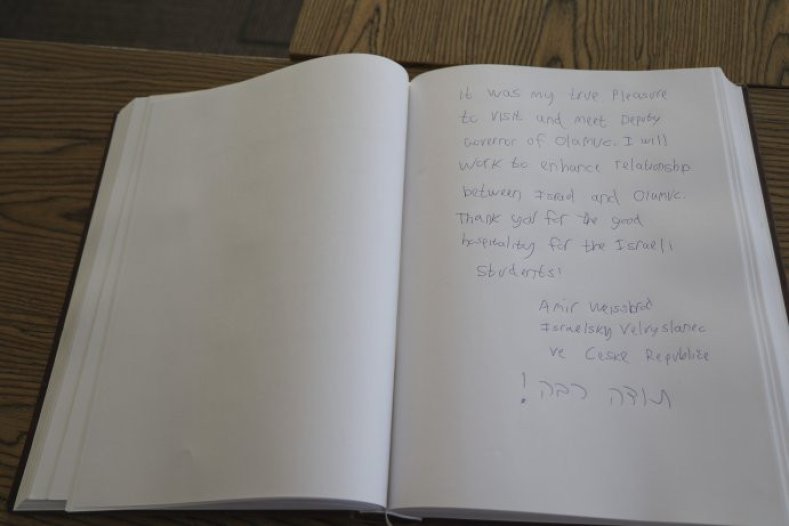 It was my true Pleasure
to visit and meet Deputy
Governor of Olamuc. I will
work to enhance relationship
between Israel and Olamuc.
Thank you for the good
hospitality for the Israeli
students!
Amir Weissbrod
Israelsky Velvyslanec
ve Ceske Republice
תודה רבה!